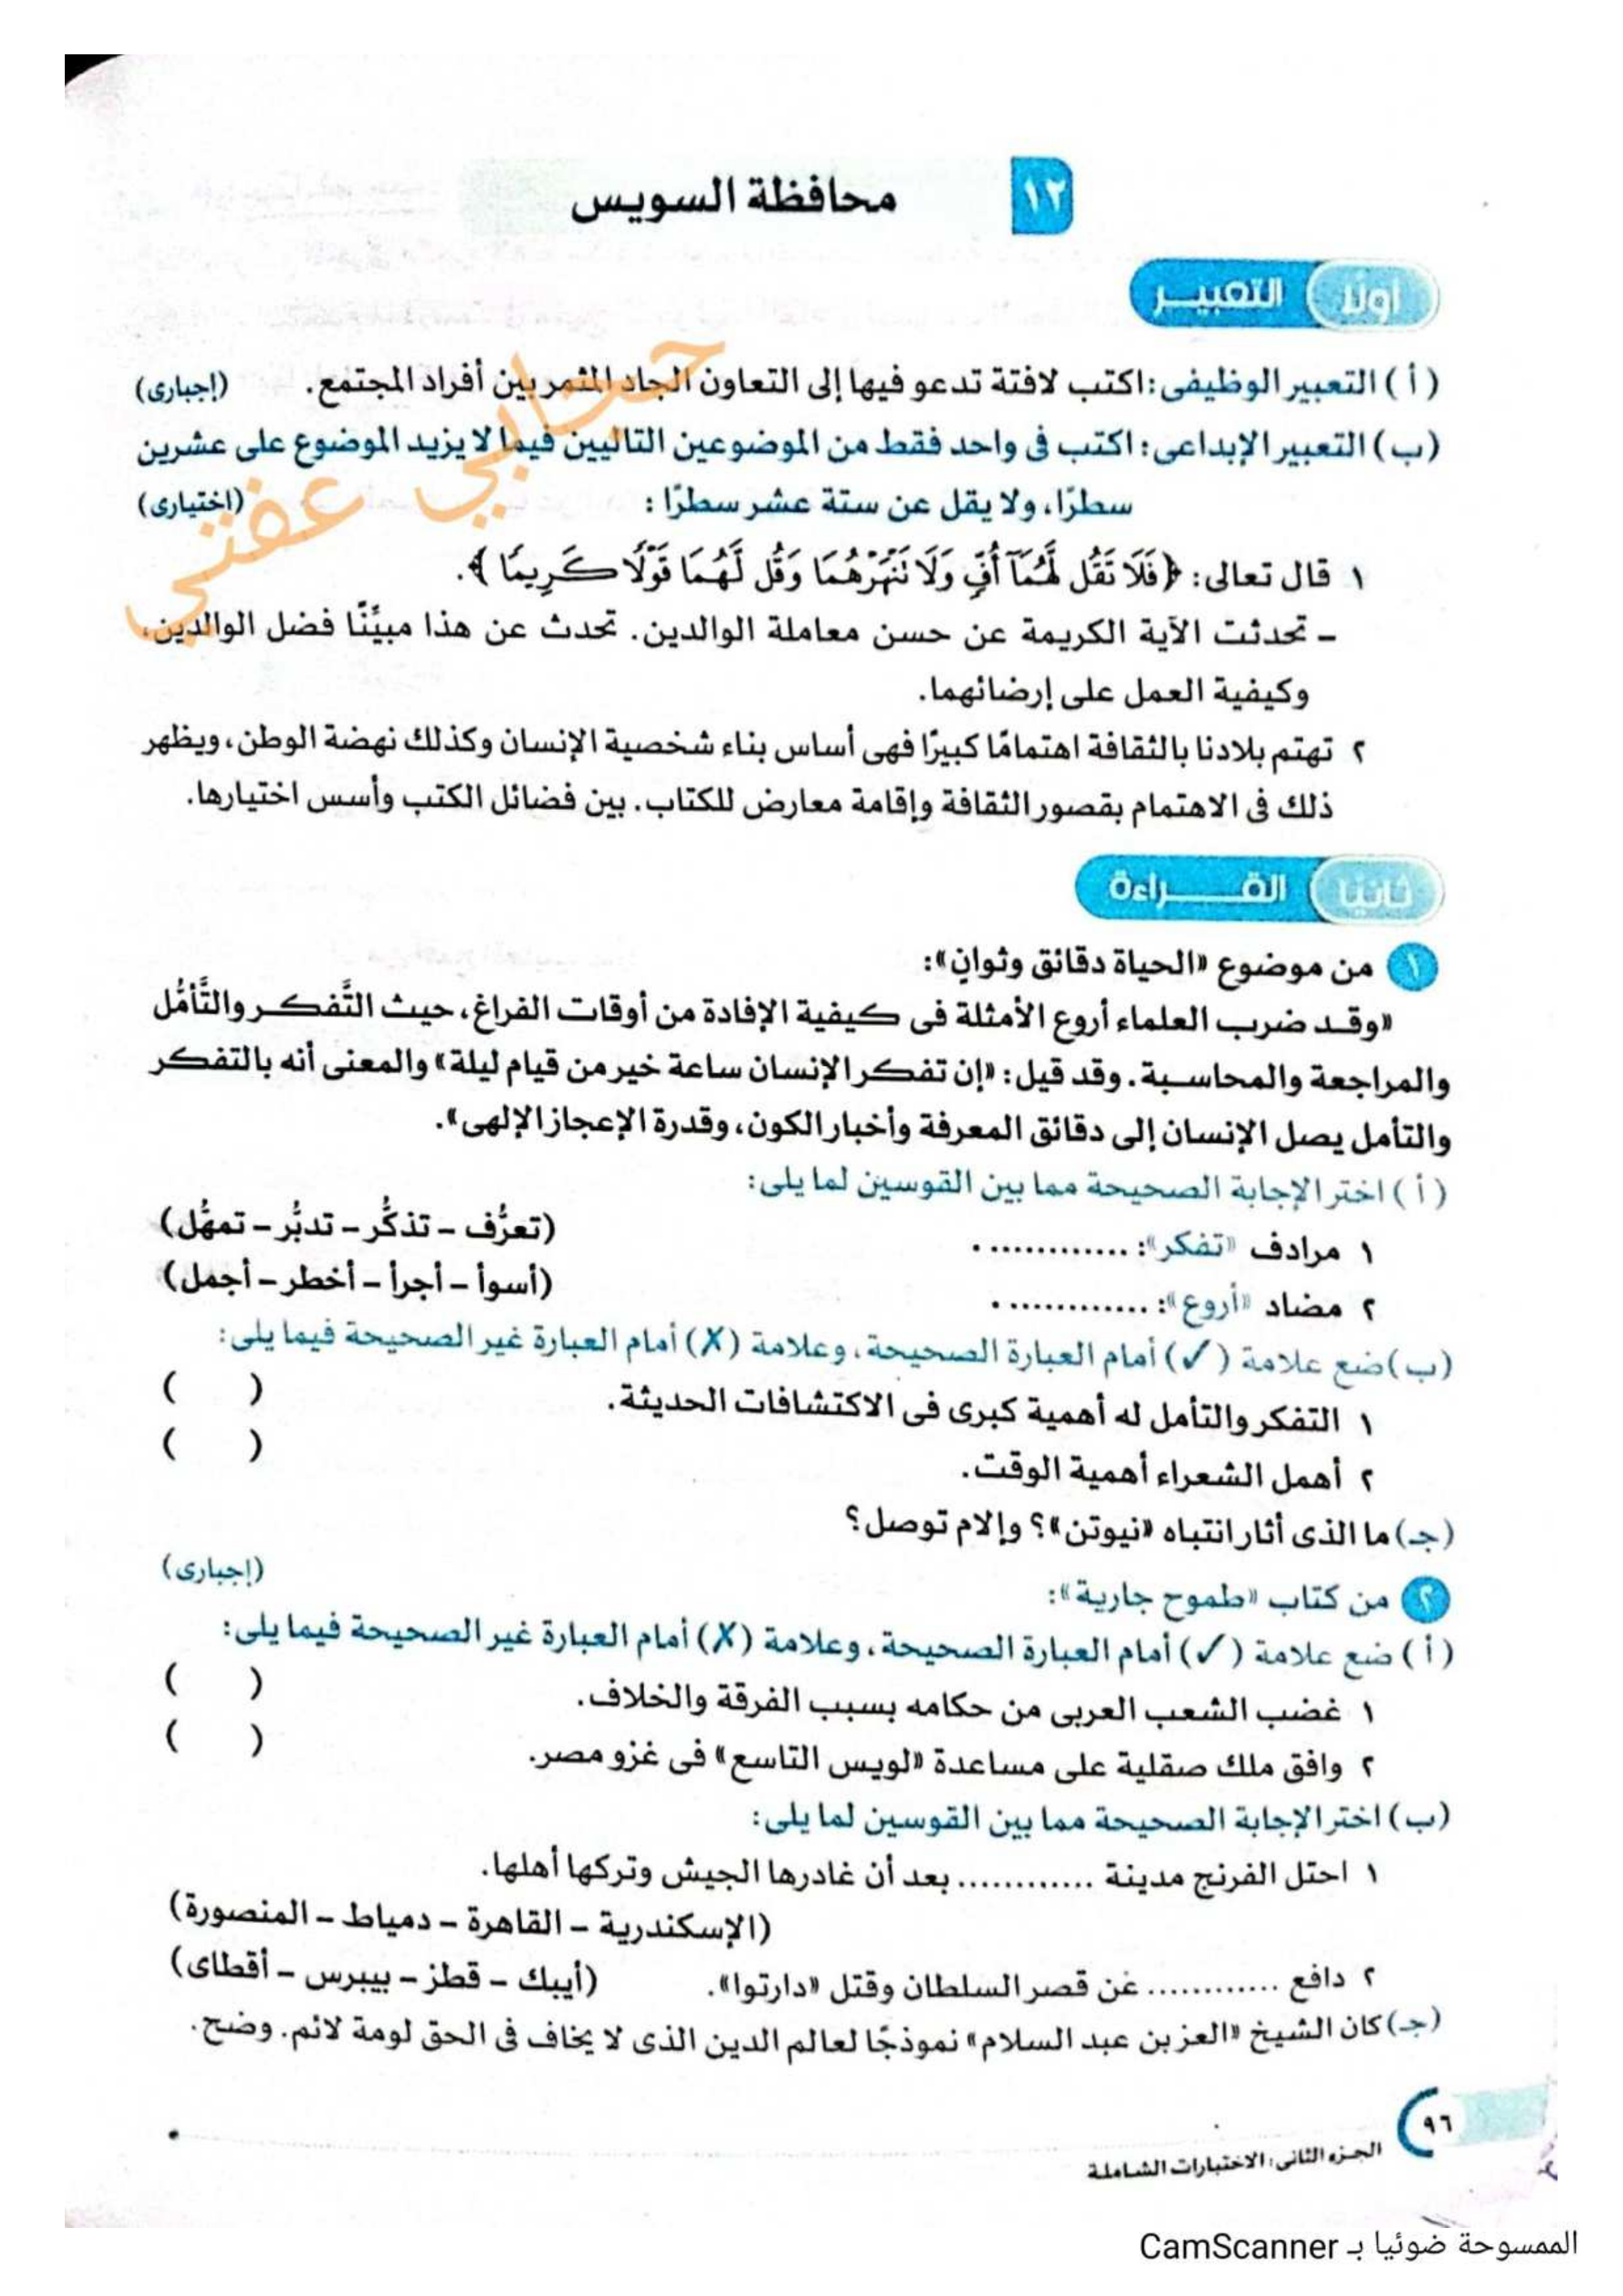 ١٢ محافظة السويس
أولًا التعبير
( أ ) التعبير الوظيفى: اكتب لافتة تدعو فيها إلى التعاون الجاد المثمر بين أفراد المجتمع. (إجبارى)
(ب) التعبير الإبداعى: اكتب فى واحد فقط من الموضوعين التاليين فيما لا يزيد الموضوع على عشرين
سطرًا، ولا يقل عن ستة عشر سطرًا : (اختيارى)
١ قال تعالى: ﴿ فَلَا تَقُل لَّهُمَآ أُفٍّ وَلَا تَنْهَرْهُمَا وَقُل لَّهُمَا قَوْلًا كَرِيمًا ﴾.
– تحدثت الآية الكريمة عن حسن معاملة الوالدين. تحدث عن هذا مبيِّنًا فضل الوالدين،
وكيفية العمل على إرضائهما.
٢ تهتم بلادنا بالثقافة اهتمامًا كبيرًا فهى أساس بناء شخصية الإنسان وكذلك نهضة الوطن، ويظهر
ذلك فى الاهتمام بقصور الثقافة وإقامة معارض للكتاب. بين فضائل الكتب وأسس اختيارها.
ثانيًا القراءة
١ من موضوع «الحياة دقائق وثوانٍ»:
«وقد ضرب العلماء أروع الأمثلة فى كيفية الإفادة من أوقات الفراغ، حيث التَّفكر والتَّأمُّل
والمراجعة والمحاسبة. وقد قيل: «إن تفكر الإنسان ساعة خير من قيام ليلة» والمعنى أنه بالتفكر
والتأمل يصل الإنسان إلى دقائق المعرفة وأخبار الكون، وقدرة الإعجاز الإلهى».
( أ ) اختر الإجابة الصحيحة مما بين القوسين لما يلى:
١ مرادف «تفكر»: ............. (تعرُّف – تذكُّر – تدبُّر – تمهُّل)
٢ مضاد «أروع»: ............. (أسوأ – أجرأ – أخطر – أجمل)
(ب) ضع علامة (✓) أمام العبارة الصحيحة، وعلامة (✗) أمام العبارة غير الصحيحة فيما يلى:
١ التفكر والتأمل له أهمية كبرى فى الاكتشافات الحديثة. ( )
٢ أهمل الشعراء أهمية الوقت. ( )
(جـ) ما الذى أثار انتباه «نيوتن»؟ وإلام توصل؟
٢ من كتاب «طموح جارية»: (إجبارى)
( أ ) ضع علامة (✓) أمام العبارة الصحيحة، وعلامة (✗) أمام العبارة غير الصحيحة فيما يلى:
١ غضب الشعب العربى من حكامه بسبب الفرقة والخلاف. ( )
٢ وافق ملك صقلية على مساعدة «لويس التاسع» فى غزو مصر. ( )
(ب) اختر الإجابة الصحيحة مما بين القوسين لما يلى:
١ احتل الفرنج مدينة ............ بعد أن غادرها الجيش وتركها أهلها.
(الإسكندرية – القاهرة – دمياط – المنصورة)
٢ دافع ............ عن قصر السلطان وقتل «دارتوا». (أيبك – قطز – بيبرس – أقطاى)
(جـ) كان الشيخ «العز بن عبد السلام» نموذجًا لعالم الدين الذى لا يخاف فى الحق لومة لائم. وضح.
٩٦
الجزء الثانى: الاختبارات الشاملة
الممسوحة ضوئيا بـ CamScanner